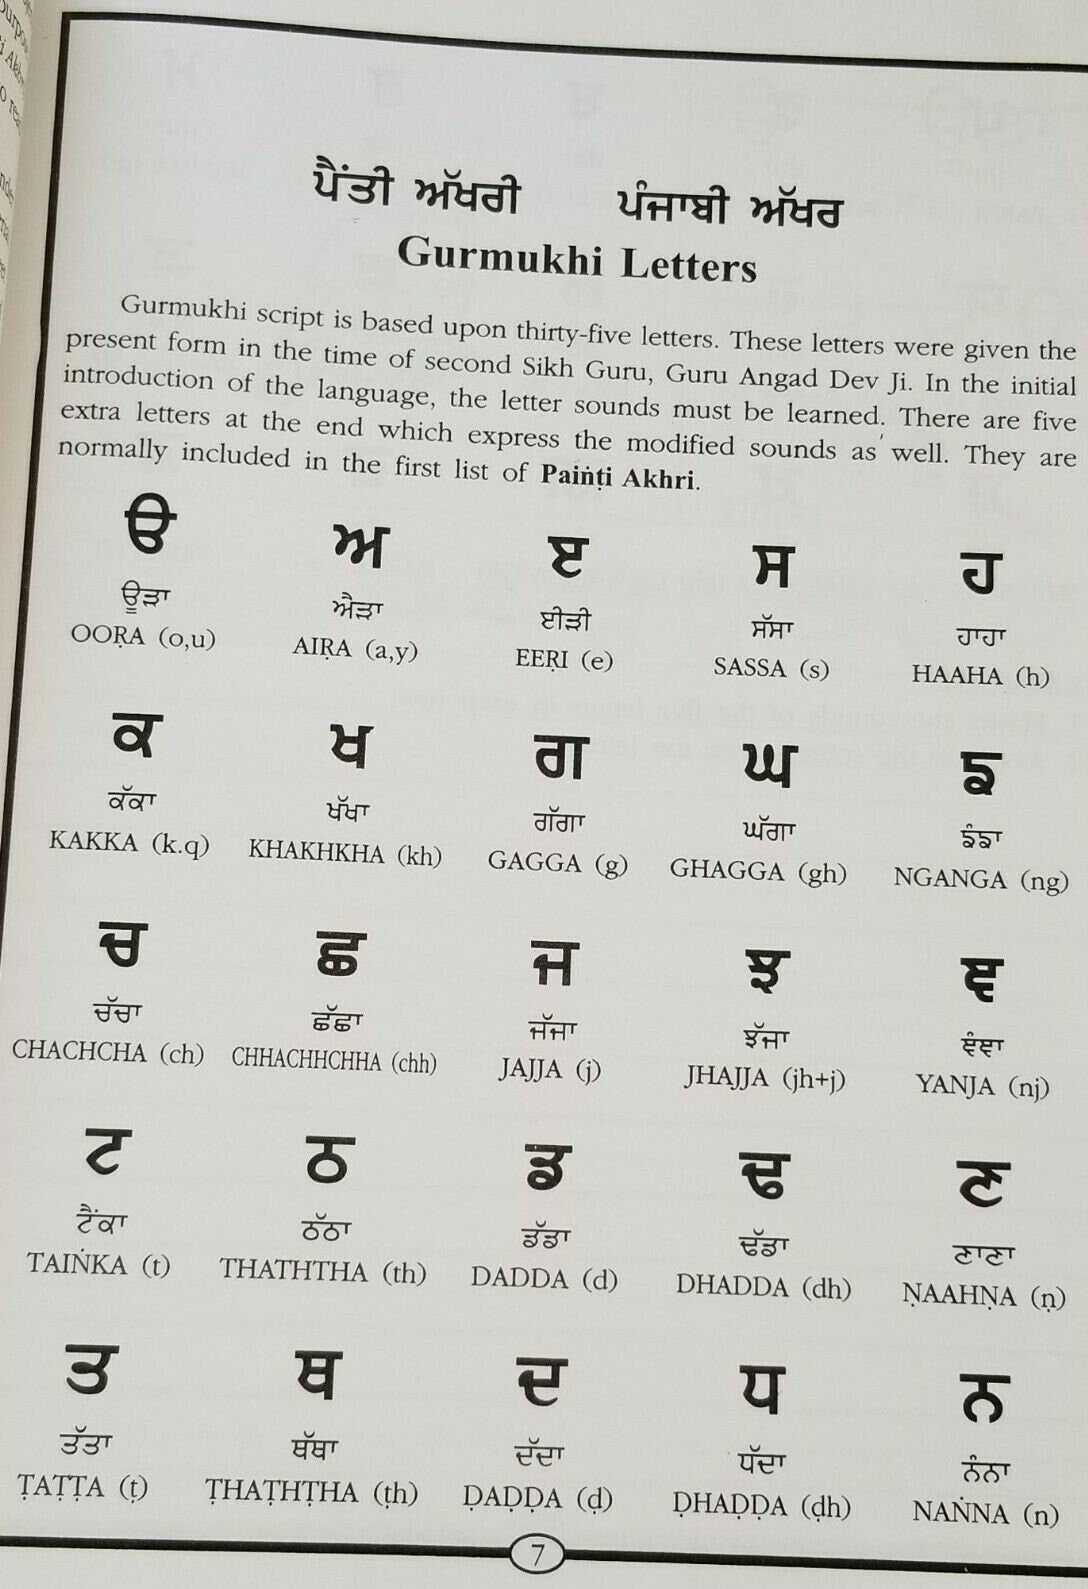 ਪੈਂਤੀ ਅੱਖਰੀ ਪੰਜਾਬੀ ਅੱਖਰ
Gurmukhi Letters
Gurmukhi script is based upon thirty-five letters. These letters were given the
present form in the time of second Sikh Guru, Guru Angad Dev Ji. In the initial
introduction of the language, the letter sounds must be learned. There are five
extra letters at the end which express the modified sounds as well. They are
normally included in the first list of Paiṅṭi Akhri.
ੳ ਅ ੲ ਸ ਹ
ਊੜਾ ਐੜਾ ਈੜੀ ਸੱਸਾ ਹਾਹਾ
OOṚA (o,u) AIṚA (a,y) EEṚI (e) SASSA (s) HAAHA (h)
ਕ ਖ ਗ ਘ ਙ
ਕੱਕਾ ਖੱਖਾ ਗੱਗਾ ਘੱਗਾ ਙੰਙਾ
KAKKA (k.q) KHAKHKHA (kh) GAGGA (g) GHAGGA (gh) NGANGA (ng)
ਚ ਛ ਜ ਝ ਞ
ਚੱਚਾ ਛੱਛਾ ਜੱਜਾ ਝੱਜਾ ਞੰਞਾ
CHACHCHA (ch) CHHACHHCHHA (chh) JAJJA (j) JHAJJA (jh+j) YANJA (nj)
ਟ ਠ ਡ ਢ ਣ
ਟੈਂਕਾ ਠੱਠਾ ਡੱਡਾ ਢੱਡਾ ਣਾਣਾ
TAIṄKA (t) THATHTHA (th) DADDA (d) DHADDA (dh) ṆAAHṆA (ṇ)
ਤ ਥ ਦ ਧ ਨ
ਤੱਤਾ ਥੱਥਾ ਦੱਦਾ ਧੱਦਾ ਨੰਨਾ
ṬAṬṬA (ṭ) ṬHAṬHṬHA (ṭh) ḌAḌḌA (ḍ) ḌHAḌḌA (ḍh) NAṄNA (n)
7